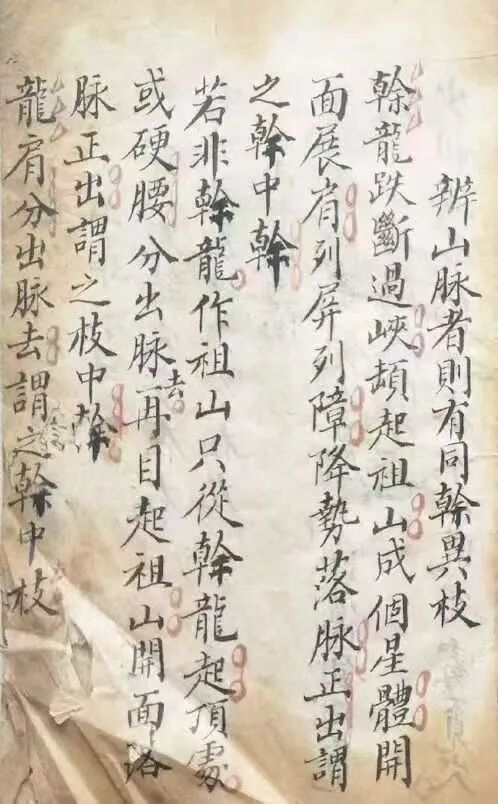 辨山脉者則有同榦異枝
榦龍跌斷過峽頓起祖山成個星體開
面展肩列屏列障降勢落脉正出謂
之榦中榦
若非榦龍作祖山只從榦龍起頂處
或硬腰分出脉去再自起祖山開面落
脉正出謂之枝中榦
龍肩分出脉去謂之榦中枝